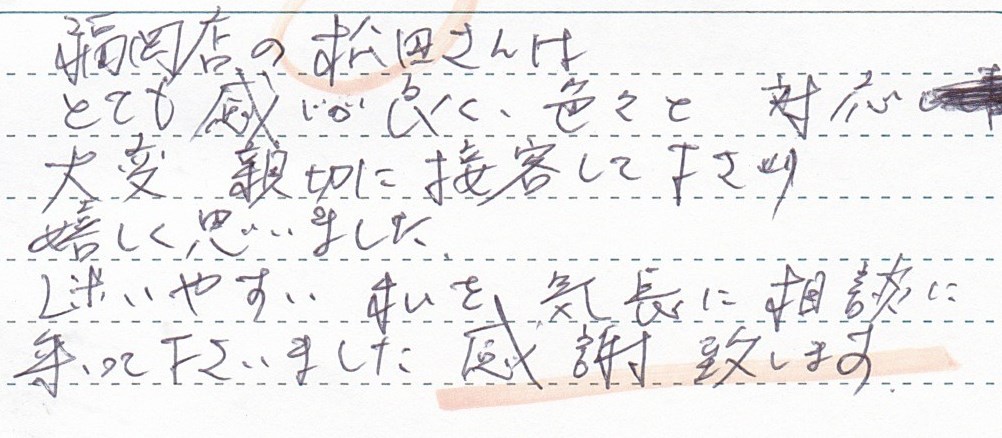 福岡店の松田さんは
とても感じが良く、色々と対応し
大変親切に接客して下さり
嬉しく思いました。
迷いやすい私を気長に相談に
乗って下さいました 感謝致します